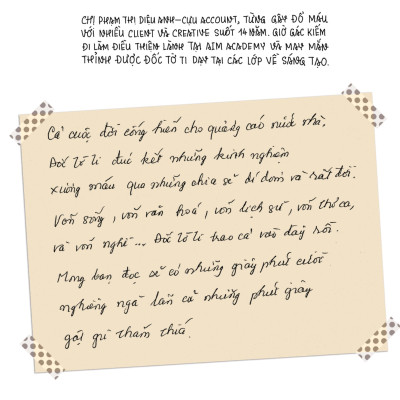 CHỊ PHẠM THỊ DIỆU ANH-CỰU ACCOUNT, TỪNG GÂY ĐỔ MÁU
VỚI NHIỀU CLIENT VÀ CREATIVE SUỐT 14 NĂM. GIỜ GÁC KIẾM
ĐI LÀM ĐIỀU THIỆN LÀNH TẠI AIM ACADEMY VÀ MAY MẮN
THỈNH ĐƯỢC ĐỐC TỜ TI DẠY TẠI CÁC LỚP VỀ SÁNG TẠO.
Cả cuộc đời cống hiến cho quảng cáo nước nhà,
Đốc tờ ti đúc kết những kinh nghiệm
xương máu qua những chia sẻ dí dỏm và rất đời.
Vốn sống, vốn văn hoá, vốn lịch sử, vốn thơ ca,
và vốn nghề... Đốc tờ ti trao cả vào đây rồi.
Mong bạn đọc sẽ có những giây phút cười
nghiêng ngả lẫn cả những phút giây
gật gù thấm thía.